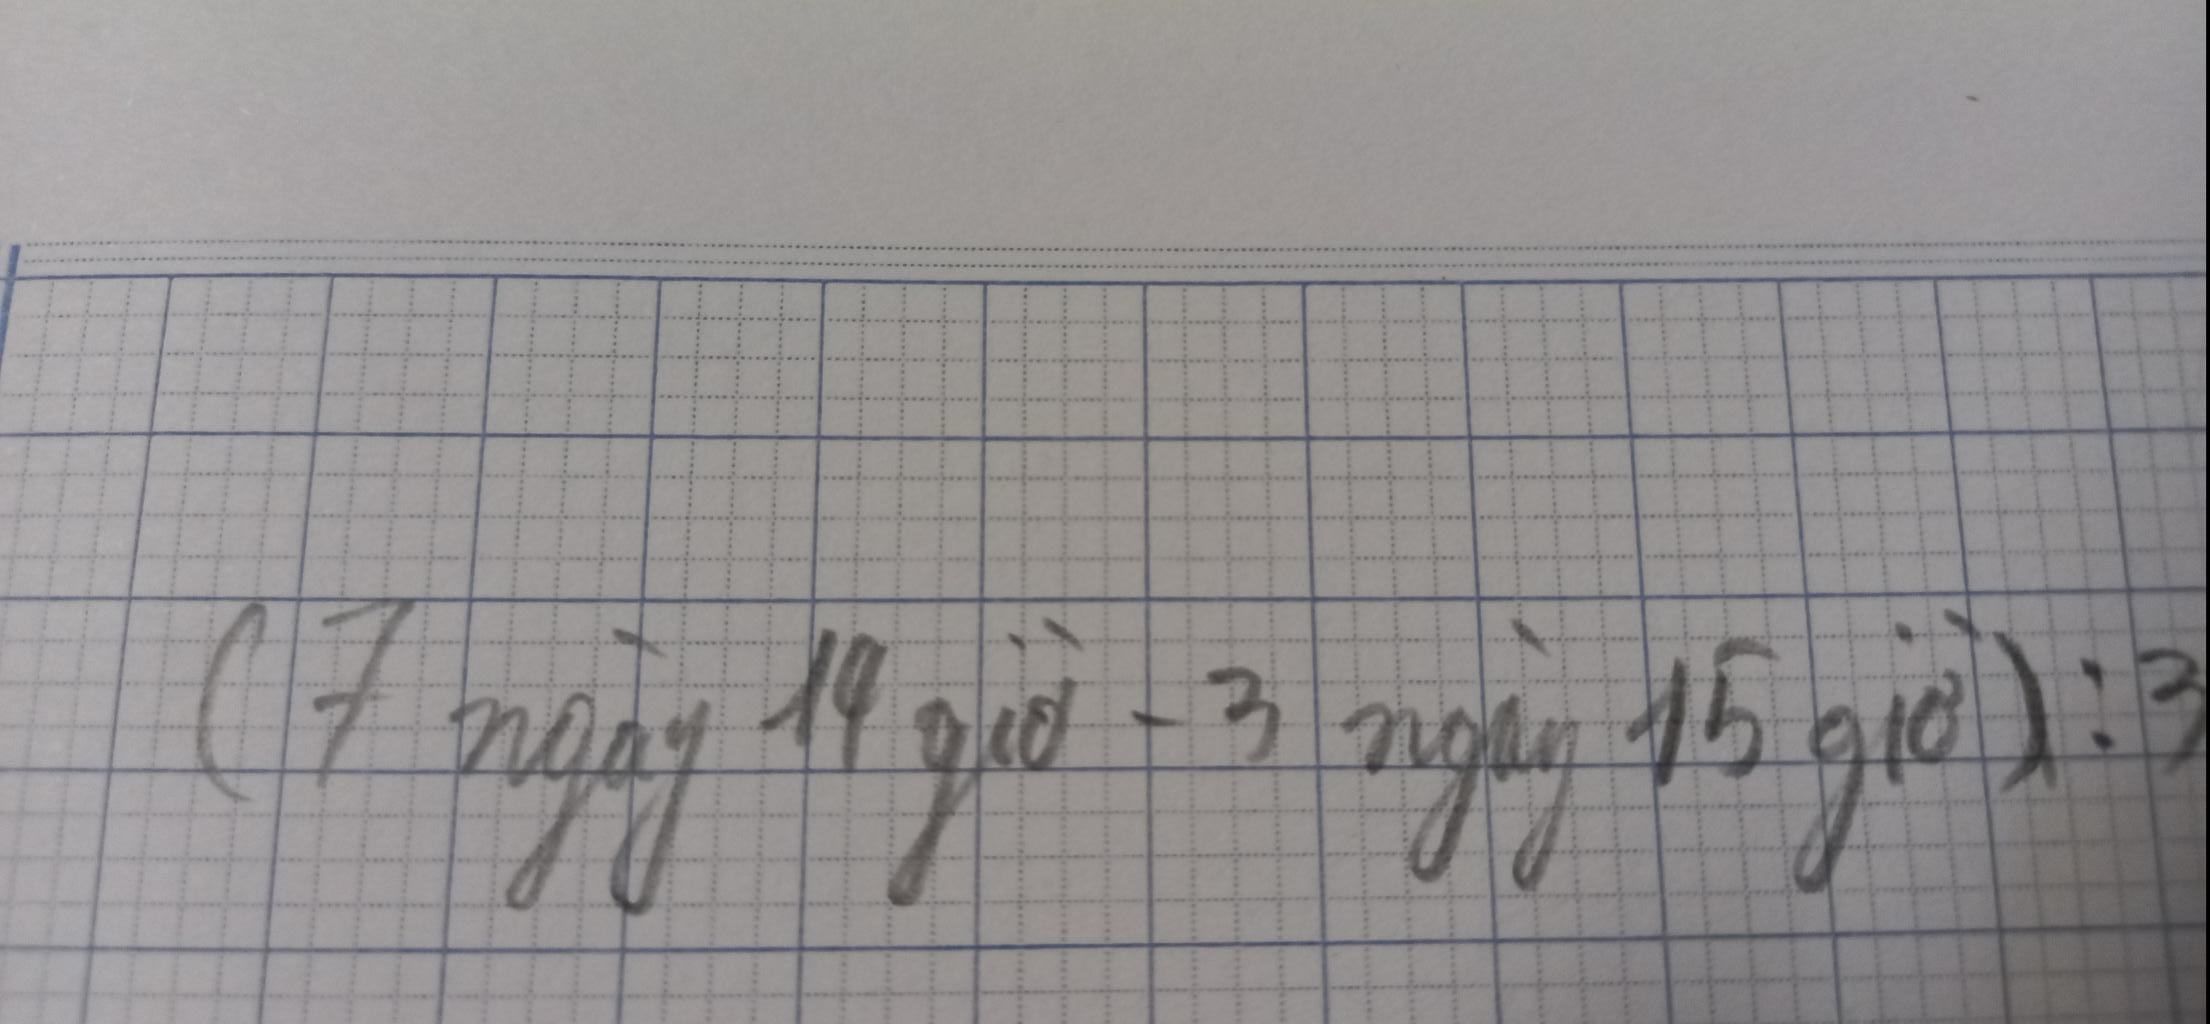 (7 ngày 14 giờ - 3 ngày 15 giờ) : 3